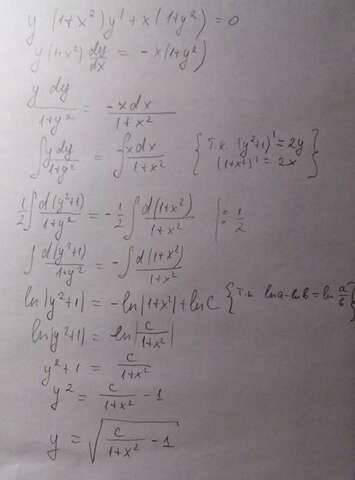 y(1+x²)y' + x(1+y²) = 0
y(1+x²) dy/dx = -x(1+y²)
y dy/(1+y²) = -xdx/(1+x²)
∫ ydy/(1+y²) = -∫ xdx/(1+x²) { т.к. (y²+1)' = 2y
(1+x²)' = 2x }
1/2 ∫ d(y²+1)/(1+y²) = -1/2 ∫ d(1+x²)/(1+x²) | : 1/2
∫ d(y²+1)/(1+y²) = -∫ d(1+x²)/(1+x²)
ln|y²+1| = -ln|1+x²| + ln C { т.к. ln a - ln b = ln a/b }
ln|y²+1| = ln|c/(1+x²)|
y²+1 = c/(1+x²)
y² = c/(1+x²) - 1
y = √(c/(1+x²) - 1)